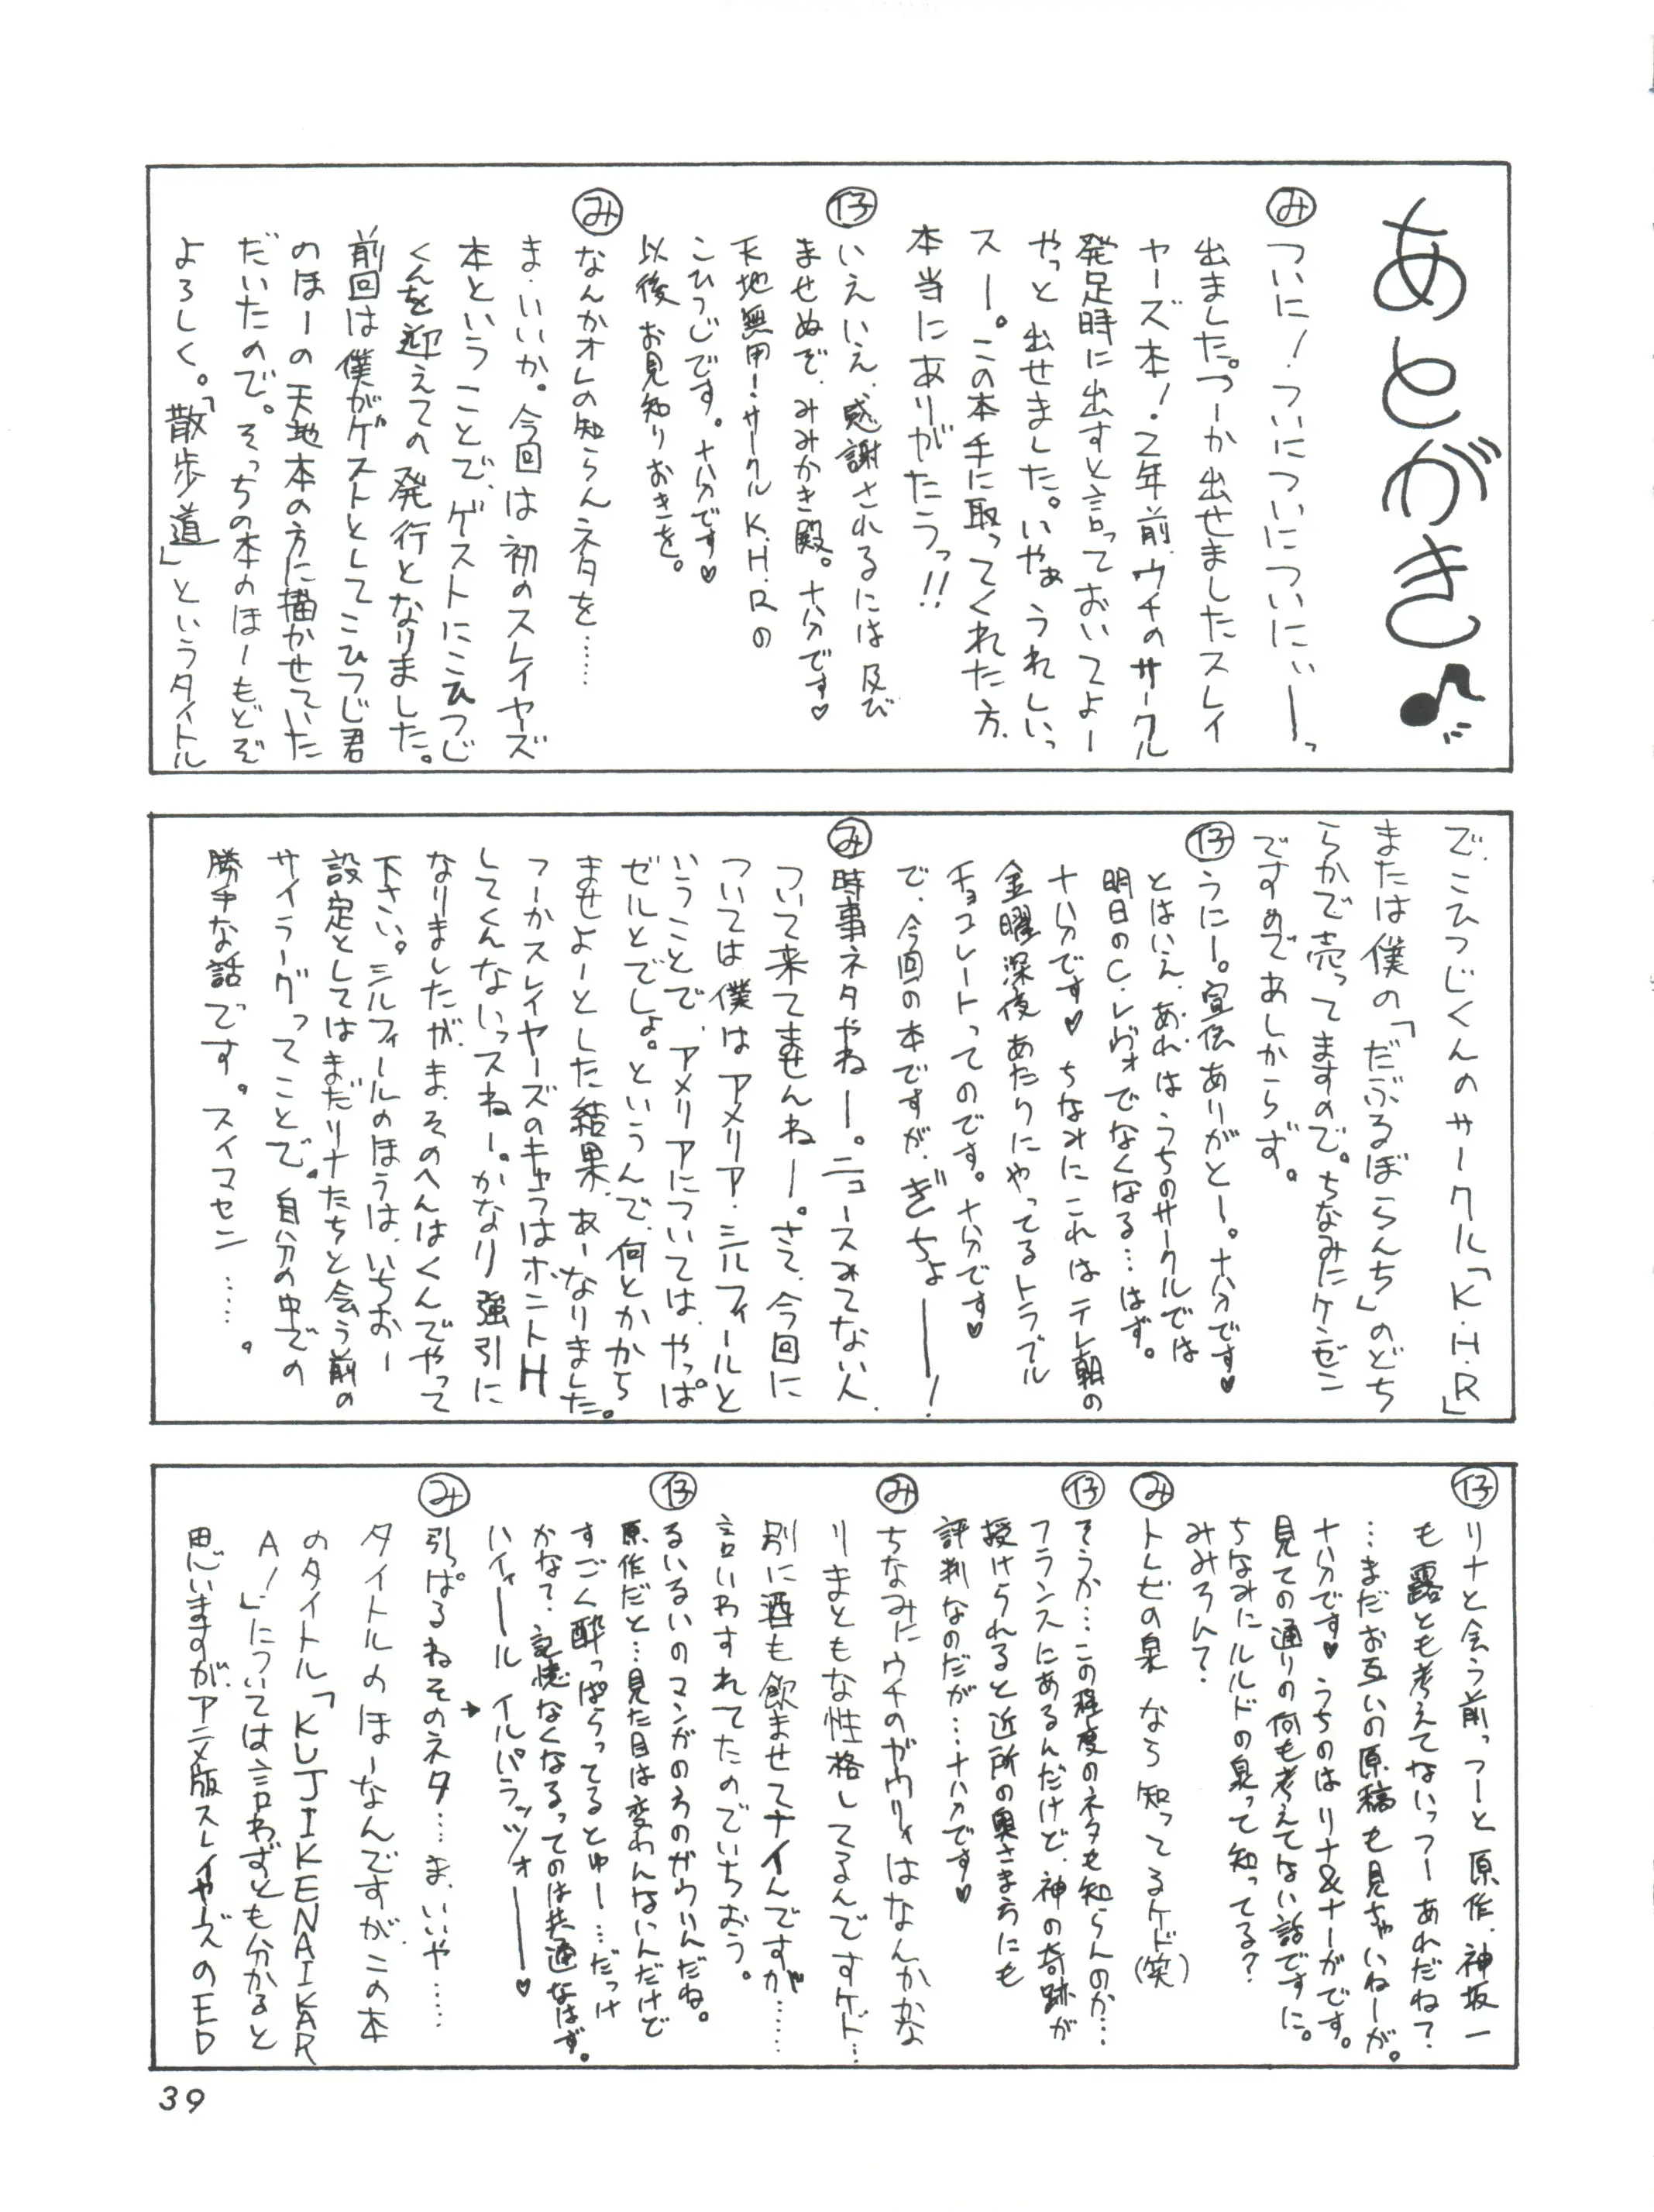 あとがき♪
み
ついに!ついについについにぃーっ
出ました。つーか出せましたスレイ
ヤーズ本!・2年前、ウチのサークル
発足時に出すと言っておいてよー
やっと出せました。いやぁうれしいっ
スー。この本手に取ってくれた方、
本当にありがたうっ!!
仔
いえいえ、感謝されるには及び
ませぬぞ、みみかき殿。十分です♥
天地無用!サークルK.H.Rの
こひつじです。十分です♥
以後お見知りおきを。
み
なんかオレの知らんネタを……
ま、いいか。今回は初のスレイヤーズ
本ということで、ゲストにこひつじ
くんを迎えての発行となりました。
前回は僕がゲストとしてこひつじ君
のほーの天地本の方に描かせていた
だいたので。そっちの本のほーもどぞ
よろしく。「散歩道」というタイトル
で、こひつじくんのサークル「K.H.R」
または僕の「だぶるぼらんち」のどち
らかで売ってますので。ちなみにケンゼン
ですのであしからず。
仔
うにー。宣伝ありがとー。十分です♥
とはいえ、あれはうちのサークルでは
明日のC・レヴォでなくなる…はず。
十分です♥ちなみにこれはテレ朝の
金曜深夜あたりにやってるトラブル
チョコレートってのです。十分です♥
で、今回の本ですが、ぎちょーー!
み
時事ネタやねー。ニュースみてない人、
ついて来てませんねー。さて、今回に
ついては僕はアメリア・シルフィールと
いうことで、アメリアについては、やっぱ
ゼルとでしょ。というんで、何とかから
ませよーとした結果、あーなりました。
つーかスレイヤーズのキャラはホントH
してくんないっスねー。かなり強引に
なりましたが、ま、そのへんはくんでやって
下さい。シルフィールのほうは、いちおー
設定としてはまだリナたちと会う前の
サイラーグってことで。自分の中での
勝手な話です。スイマセン……。
仔
リナと会う前っつーと原作、神坂一
も露とも考えてないっつーあれだね?
…まだお互いの原稿も見ちゃいねーが。
十分です♥うちのはリナ&ナーガです。
見ての通りの何も考えてない話ですに。
ちなみにルルドの泉って知ってる?
みみろん?
み
トレビの泉なら知ってるケド(笑)
仔
そうか…この程度のネタも知らんのか…
フランスにあるんだけど、神の奇跡が
授けられると近所の奥さま方にも
評判なのだが…十分です♥
み
ちなみにウチのガウリイはなんかかな
りまともな性格してるんですケド…
別に酒も飲ませてナイんですが……
言いわすれてたのでいちおう。
仔
るいるいのマンガのろのガウリんだね。
原作だと…見た目は変わんないんだけど
すごく酔っぱらってるとゆー…だっけ
かなて、記憶なくなるってのは共通なはず。
ハイィール イルパラッツォーー♥
み
引っぱるねそのネタ……ま、いいや……
タイトルのほーなんですが、この本
のタイトル「KUJIKENAIKAR
A!」については言わずとも分かると
思いますが、アニメ版スレイヤーズのED
39